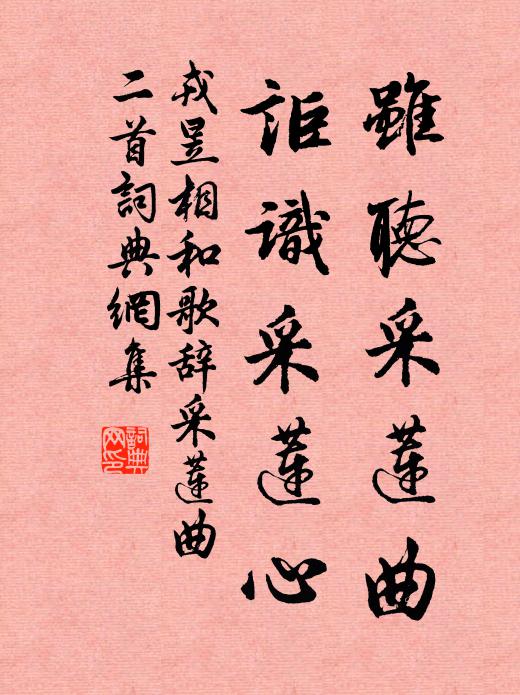 雖聽采蓮曲
詎識采蓮心
戎昱相和歌辞采蓮曲
二首詞典網集
詞典
网印